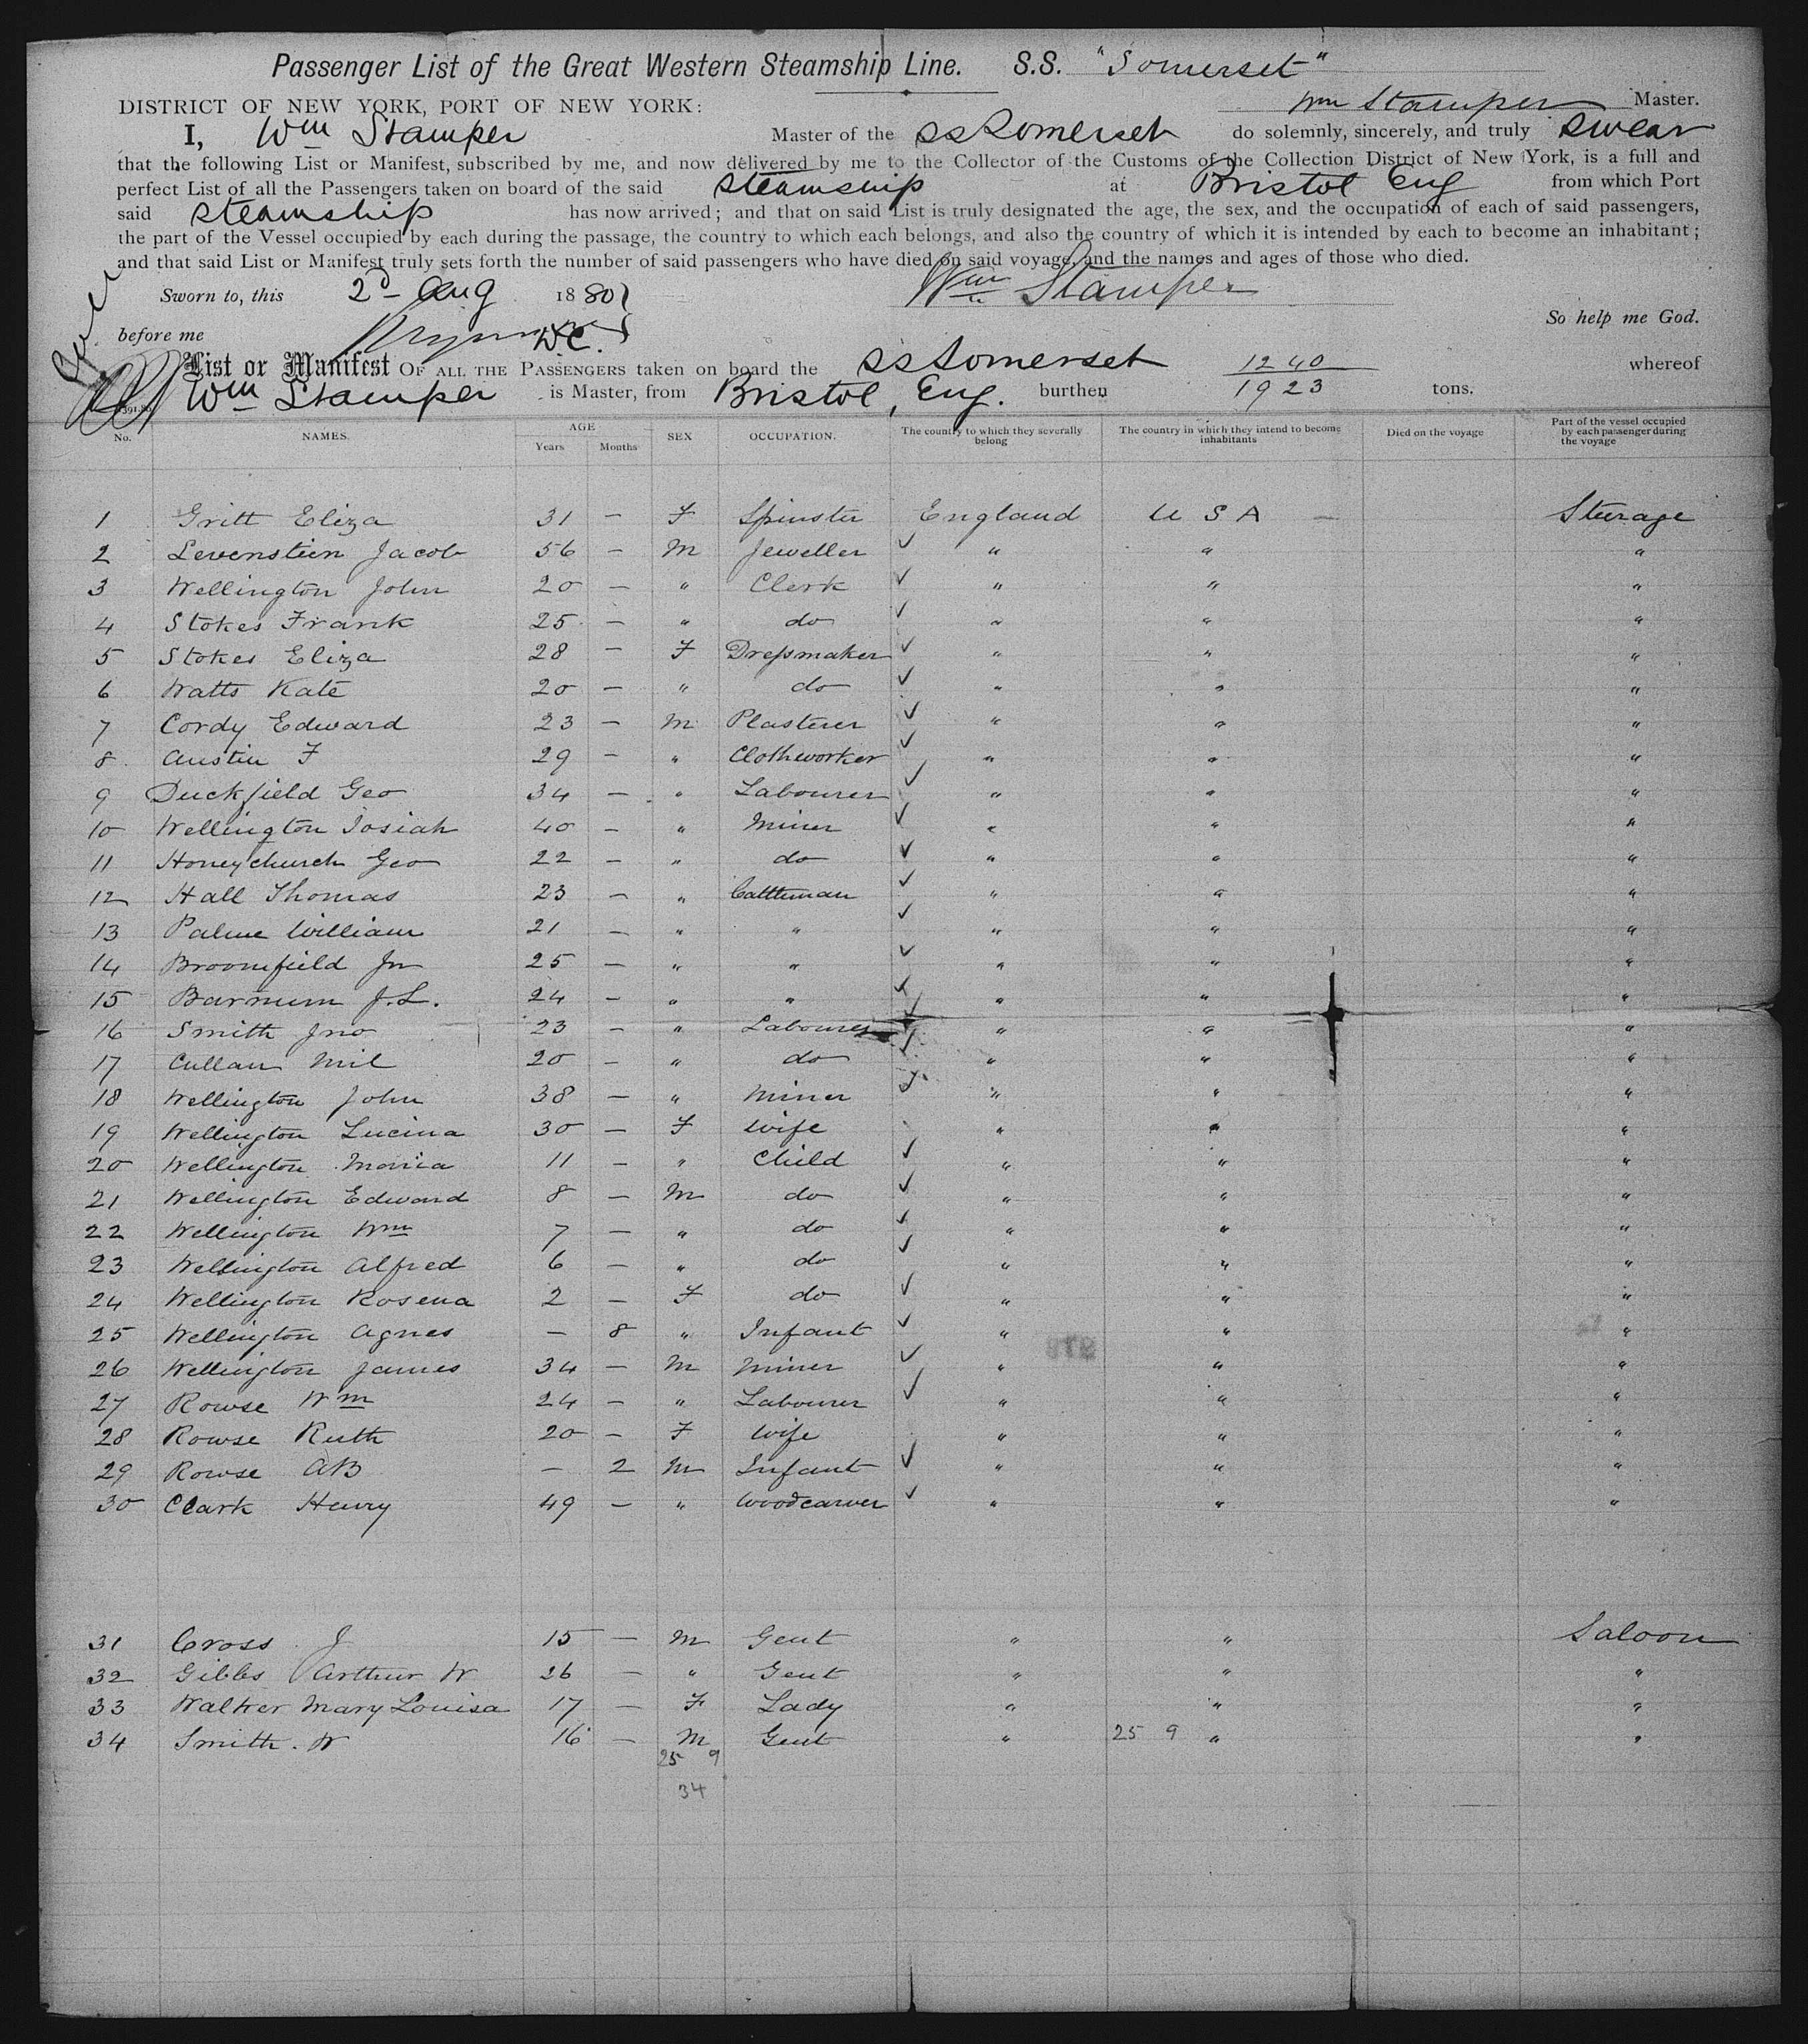 Passenger List of the Great Western Steamship Line. S.S. "Somerset"
DISTRICT OF NEW YORK, PORT OF NEW YORK: Wm Stamper Master.
I, Wm Stamper Master of the SS Somerset do solemnly, sincerely, and truly swear
that the following List or Manifest, subscribed by me, and now delivered by me to the Collector of the Customs of the Collection District of New York, is a full and
perfect List of all the Passengers taken on board of the said steamship at Bristol Eng from which Port
said steamship has now arrived; and that on said List is truly designated the age, the sex, and the occupation of each of said passengers,
the part of the Vessel occupied by each during the passage, the country to which each belongs, and also the country of which it is intended by each to become an inhabitant;
and that said List or Manifest truly sets forth the number of said passengers who have died on said voyage, and the names and ages of those who died.
Sworn to, this 2d Aug 1880 Wm Stamper
So help me God.
before me DC.
List or Manifest OF ALL THE PASSENGERS taken on board the SS Somerset 1240 whereof
Wm Stamper is Master, from Bristol, Eng. burthen 1923 tons.
No. NAMES. AGE Years Months SEX OCCUPATION. The country to which they severally belong The country in which they intend to become inhabitants Died on the voyage Part of the vessel occupied by each passenger during the voyage
1 Gritt Eliza 31 — F Spinster England U S A — Steerage
2 Levenstein Jacob 56 — M Jeweller ✓ " " "
3 Wellington John 20 — " Clerk ✓ " " "
4 Stokes Frank 25 — " do ✓ " " "
5 Stokes Eliza 28 — F Dressmaker ✓ " " "
6 Watts Kate 20 — " do ✓ " " "
7 Cordy Edward 23 — M Plasterer ✓ " " "
8 Austin F 29 — " Clothworker ✓ " " "
9 Duckfield Geo 34 — " Labourer ✓ " " "
10 Wellington Josiah 40 — " Miner ✓ " " "
11 Honeychurch Geo 22 — " do ✓ " " "
12 Hall Thomas 23 — " Cattleman ✓ " " "
13 Palme William 21 — " " ✓ " " "
14 Broomfield Jn 25 — " " ✓ " " "
15 Barnum J.L. 24 — " " ✓ " " "
16 Smith Jno 23 — " Labourer ✓ " " "
17 Cullan Mil 20 — " do ✓ " " "
18 Wellington John 38 — " Miner ✓ " " "
19 Wellington Lucina 30 — F Wife " " "
20 Wellington Maria 11 — " Child ✓ " " "
21 Wellington Edward 8 — M do ✓ " " "
22 Wellington Wm 7 — " do ✓ " " "
23 Wellington Alfred 6 — " do ✓ " " "
24 Wellington Rosena 2 — F do ✓ " " "
25 Wellington Agnes — 8 " Infant ✓ " " "
26 Wellington James 34 — M Miner ✓ " " "
27 Rowse Wm 24 — " Labourer ✓ " " "
28 Rowse Ruth 20 — F Wife " " "
29 Rowse AB — 2 M Infant ✓ " " "
30 Clark Henry 49 — " Woodcarver ✓ " " "
31 Cross J 15 — M Gent " " Saloon
32 Gibbs Arthur W 26 — " Gent " " "
33 Walker Mary Louisa 17 — F Lady " " "
34 Smith. W 16 — M Gent " 25 9 " "
25 9
34